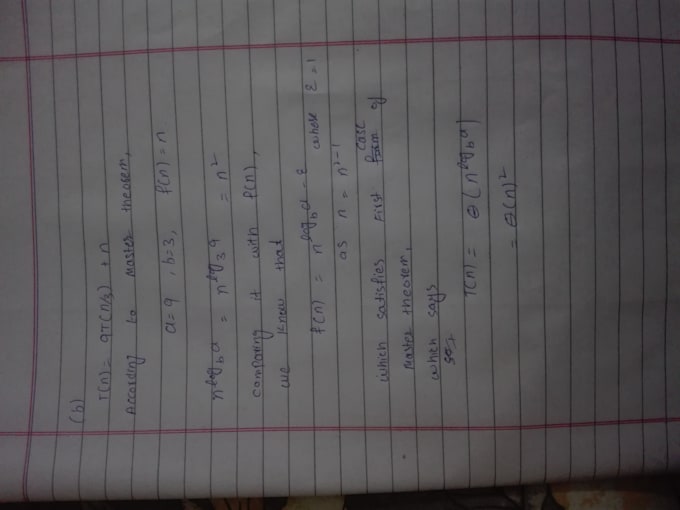 (b)
T(n) = 9T(n/3) + n
According to master theorem,
a=9, b=3, f(n) = n.
n^log_b a = n^log_3 9 = n^2
comparing it with f(n),
we know that
f(n) = n^log_b a - ε where ε = 1
as n = n^2-1
case
which satisfies first of
master theorem,
which says
T(n) = Θ(n^log_b a)
= Θ(n)^2